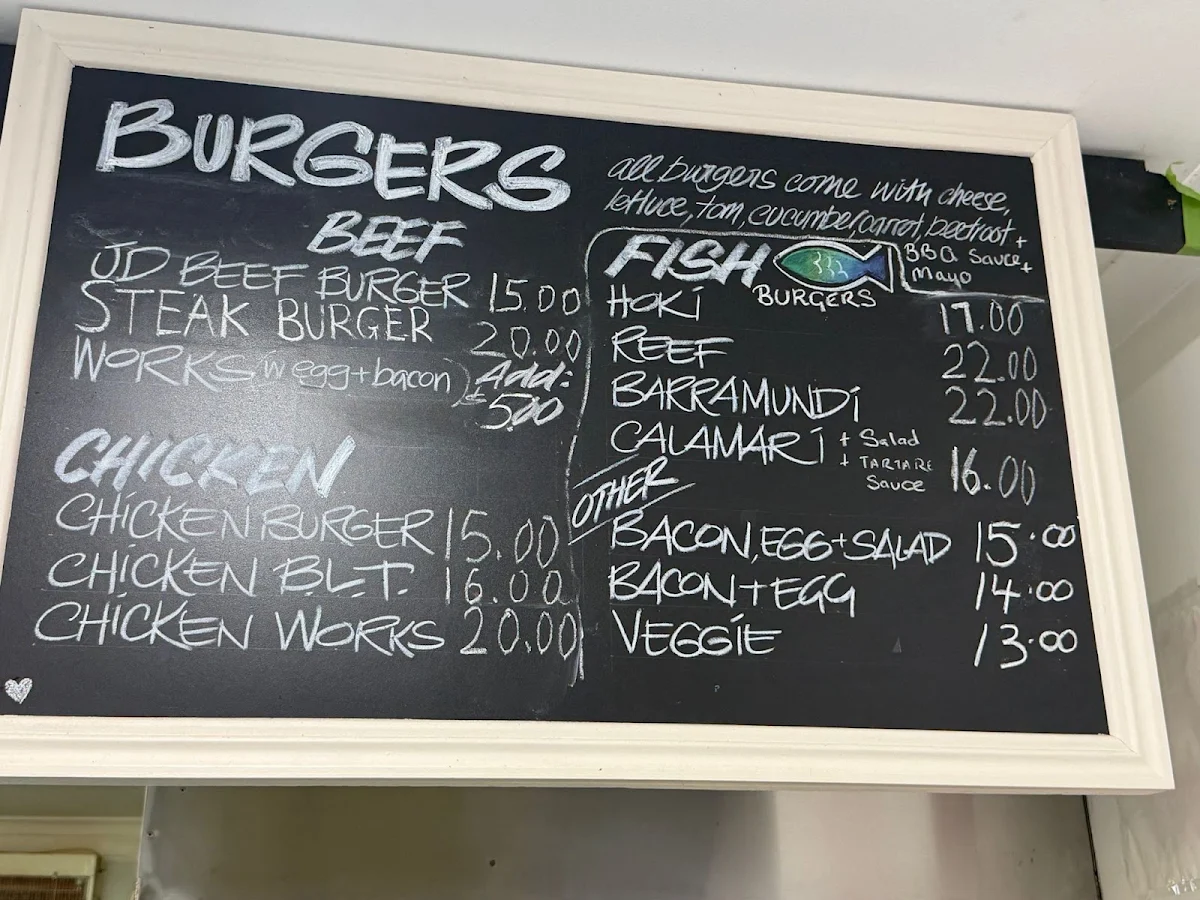 BURGERS
BEEF
JD BEEF BURGER 15.00
STEAK BURGER 20.00
WORKS (w egg + bacon) Add: $5.00
CHICKEN
CHICKEN BURGER 15.00
CHICKEN B.L.T. 16.00
CHICKEN WORKS 20.00
all burgers come with cheese,
lettuce, tom, cucumber, carrot, beetroot +
BBQ Sauce +
Mayo
FISH
BURGERS
HOKI 17.00
REEF 22.00
BARRAMUNDI 22.00
CALAMARI + Salad
+ TARTARE
Sauce 16.00
OTHER
BACON, EGG + SALAD 15.00
BACON + EGG 14.00
VEGGIE 13.00